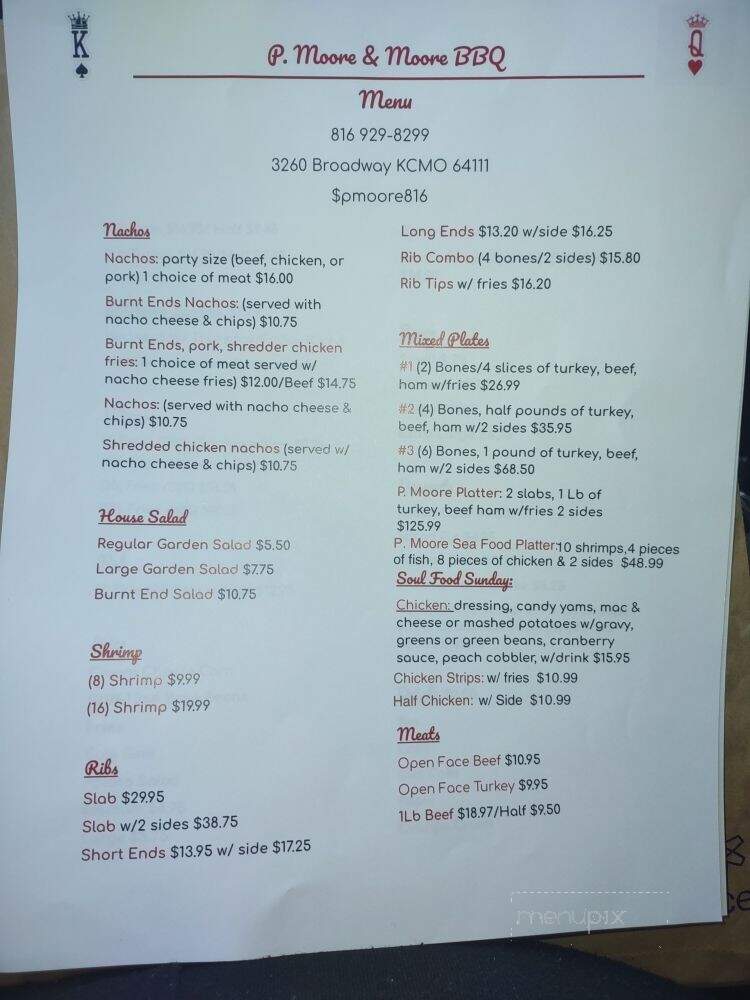 K
Q
P. Moore & Moore BBQ
Menu
816 929-8299
3260 Broadway KCMO 64111
$pmoore816
Nachos
Nachos: party size (beef, chicken, or
pork) 1 choice of meat $16.00
Burnt Ends Nachos: (served with
nacho cheese & chips) $10.75
Burnt Ends, pork, shredder chicken
fries: 1 choice of meat served w/
nacho cheese fries) $12.00/Beef $14.75
Nachos: (served with nacho cheese &
chips) $10.75
Shredded chicken nachos (served w/
nacho cheese & chips) $10.75
House Salad
Regular Garden Salad $5.50
Large Garden Salad $7.75
Burnt End Salad $10.75
Shrimp
(8) Shrimp $9.99
(16) Shrimp $19.99
Ribs
Slab $29.95
Slab w/2 sides $38.75
Short Ends $13.95 w/ side $17.25
Long Ends $13.20 w/side $16.25
Rib Combo (4 bones/2 sides) $15.80
Rib Tips w/ fries $16.20
Mixed Plates
#1 (2) Bones/4 slices of turkey, beef,
ham w/fries $26.99
#2 (4) Bones, half pounds of turkey,
beef, ham w/2 sides $35.95
#3 (6) Bones, 1 pound of turkey, beef,
ham w/2 sides $68.50
P. Moore Platter: 2 slabs, 1 Lb of
turkey, beef ham w/fries 2 sides
$125.99
P. Moore Sea Food Platter:10 shrimps,4 pieces
of fish, 8 pieces of chicken & 2 sides $48.99
Soul Food Sunday:
Chicken: dressing, candy yams, mac &
cheese or mashed potatoes w/gravy,
greens or green beans, cranberry
sauce, peach cobbler, w/drink $15.95
Chicken Strips: w/ fries $10.99
Half Chicken: w/ Side $10.99
Meats
Open Face Beef $10.95
Open Face Turkey $9.95
1Lb Beef $18.97/Half $9.50
menupix